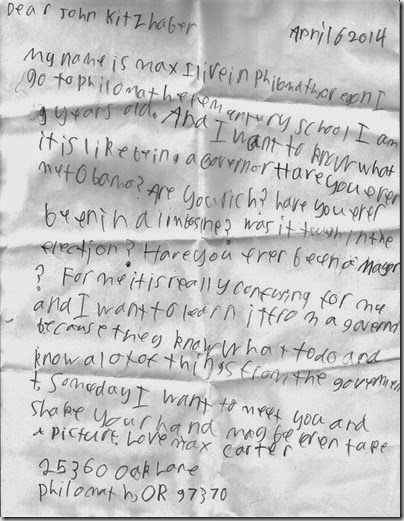 Dear John Kitzhaber
April 6 2014
My name is max I live in Philomath oregon I
go to philomath elementury school I am
9 years old. And I want to know what
it is like being a Governor Have you ever
met Obama? Are you rich? have you ever
been in a limosine? was it tough in the
election? Have you ever been a Mayor
? For me it is really confusing for me
and I want to learn it from a governm
because they know what to do and
know a lot of things from the governmen
t. Someday I want to meet you and
shake your hand maybe even take
a picture. Love max carter
25360 Oak Lane
philomath, OR 97370